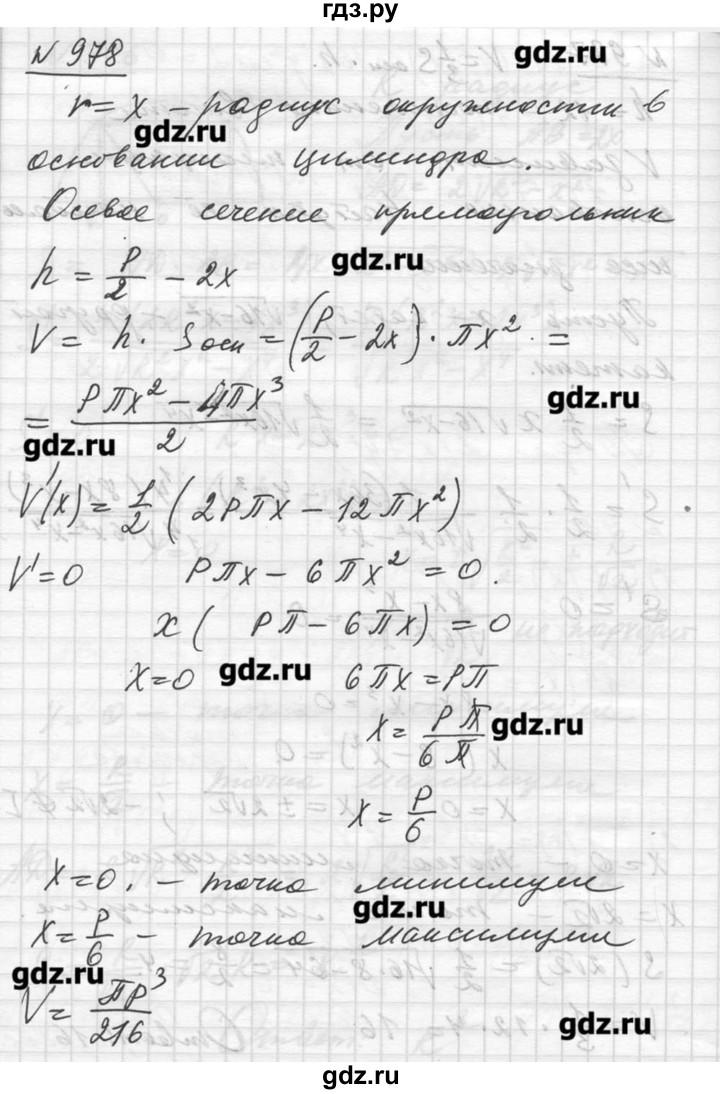 гдз.ру
№ 978
gdz.ru
r = x – радиус окружности в
gdz.ru
основании цилиндра.
Осевое сечение прямоугольник
h = P/2 – 2x
gdz.ru
V = h · Sосн = (P/2 – 2x) · πx² =
= (Pπx² – 4πx³)/2
gdz.ru
gdz.ru
V'(x) = 1/2 (2Pπx – 12πx²)
V' = 0 Pπx – 6πx² = 0.
x( Pπ – 6πx) = 0
x = 0 gdz.ru 6πx = Pπ
x = Pπ/6π gdz.ru
x = P/6
x = 0. – точка минимума
gdz.ru
x = P/6 – точка максимума
gdz.ru
V = πP³/216
gdz.ru
gdz.ru